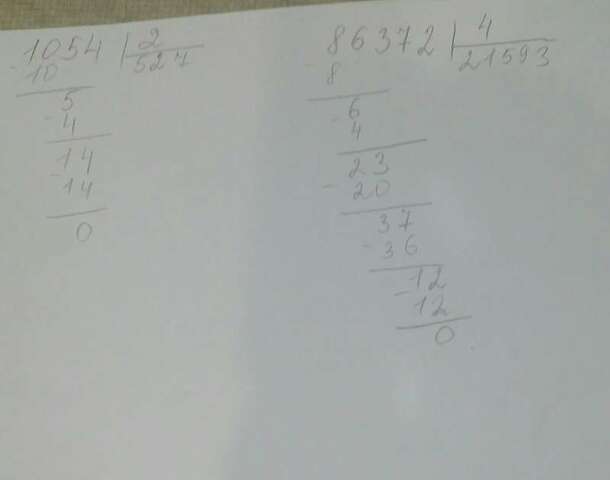 1054 | 2
- 10 527
5
- 4
14
- 14
0
86372 | 4
- 8 21593
6
- 4
23
- 20
37
- 36
12
- 12
0